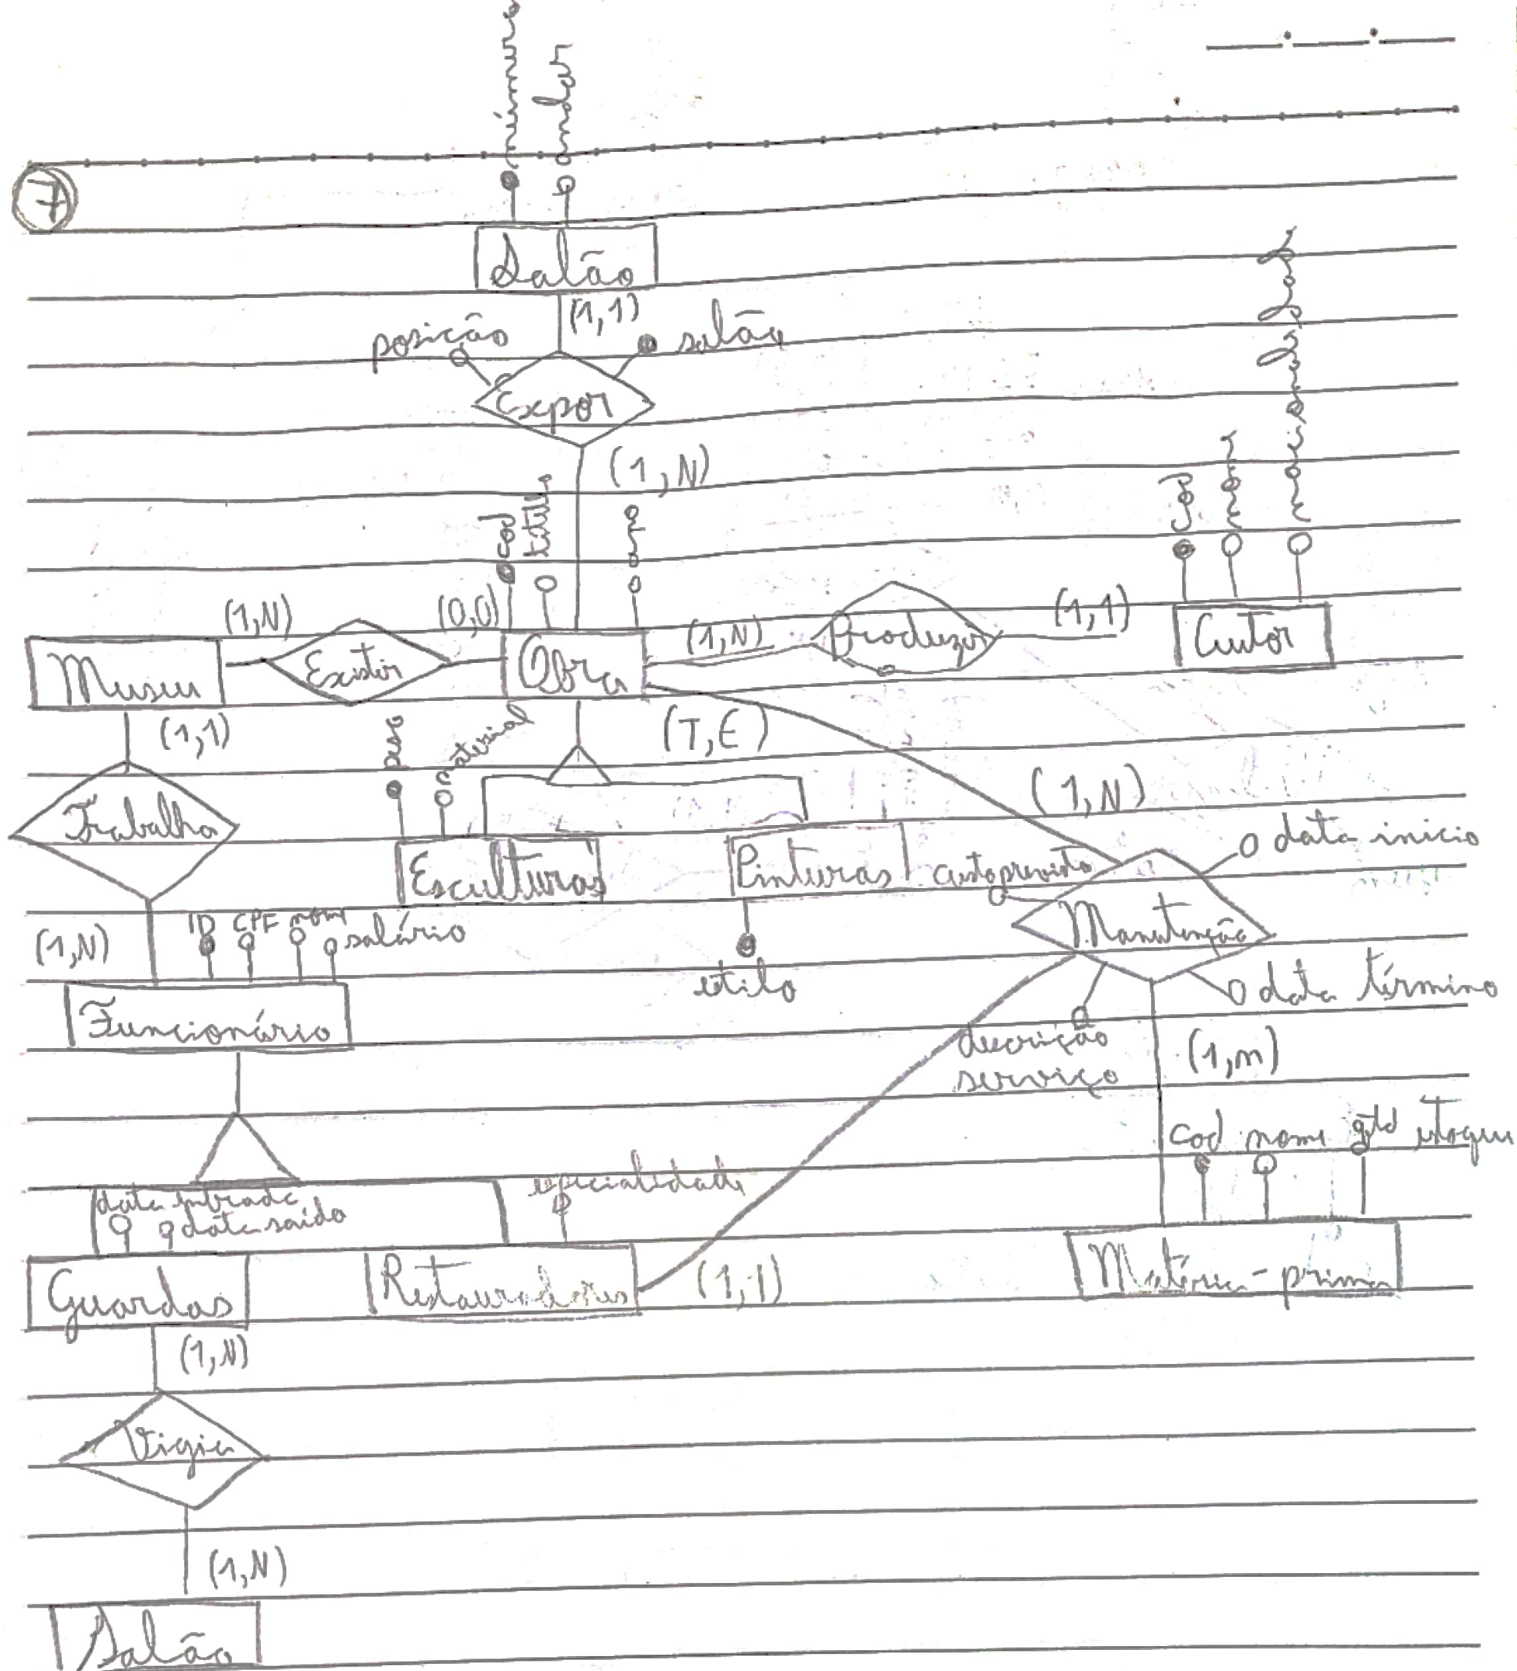 número
andar
7
Salão
(1,1)
posição
salão
Expor
(1,N)
cod
titulo
ano
cod
nome
nacionalidade
(1,N)
(0,0)
(1,N)
(1,1)
Museu
Existir
Obra
Produzir
Autor
(1,1)
peso
material
(T,E)
(1,N)
Trabalha
Esculturas
Pinturas
custo previsto
data inicio
Manutenção
(1,N)
ID CPF nome salário
estilo
data término
Funcionário
descrição
serviço
(1,n)
cod nome qtd estoque
data entrada
data saída
especialidade
Guardas
Restauradores
(1,1)
Matéria-prima
(1,N)
Vigia
(1,N)
Salão